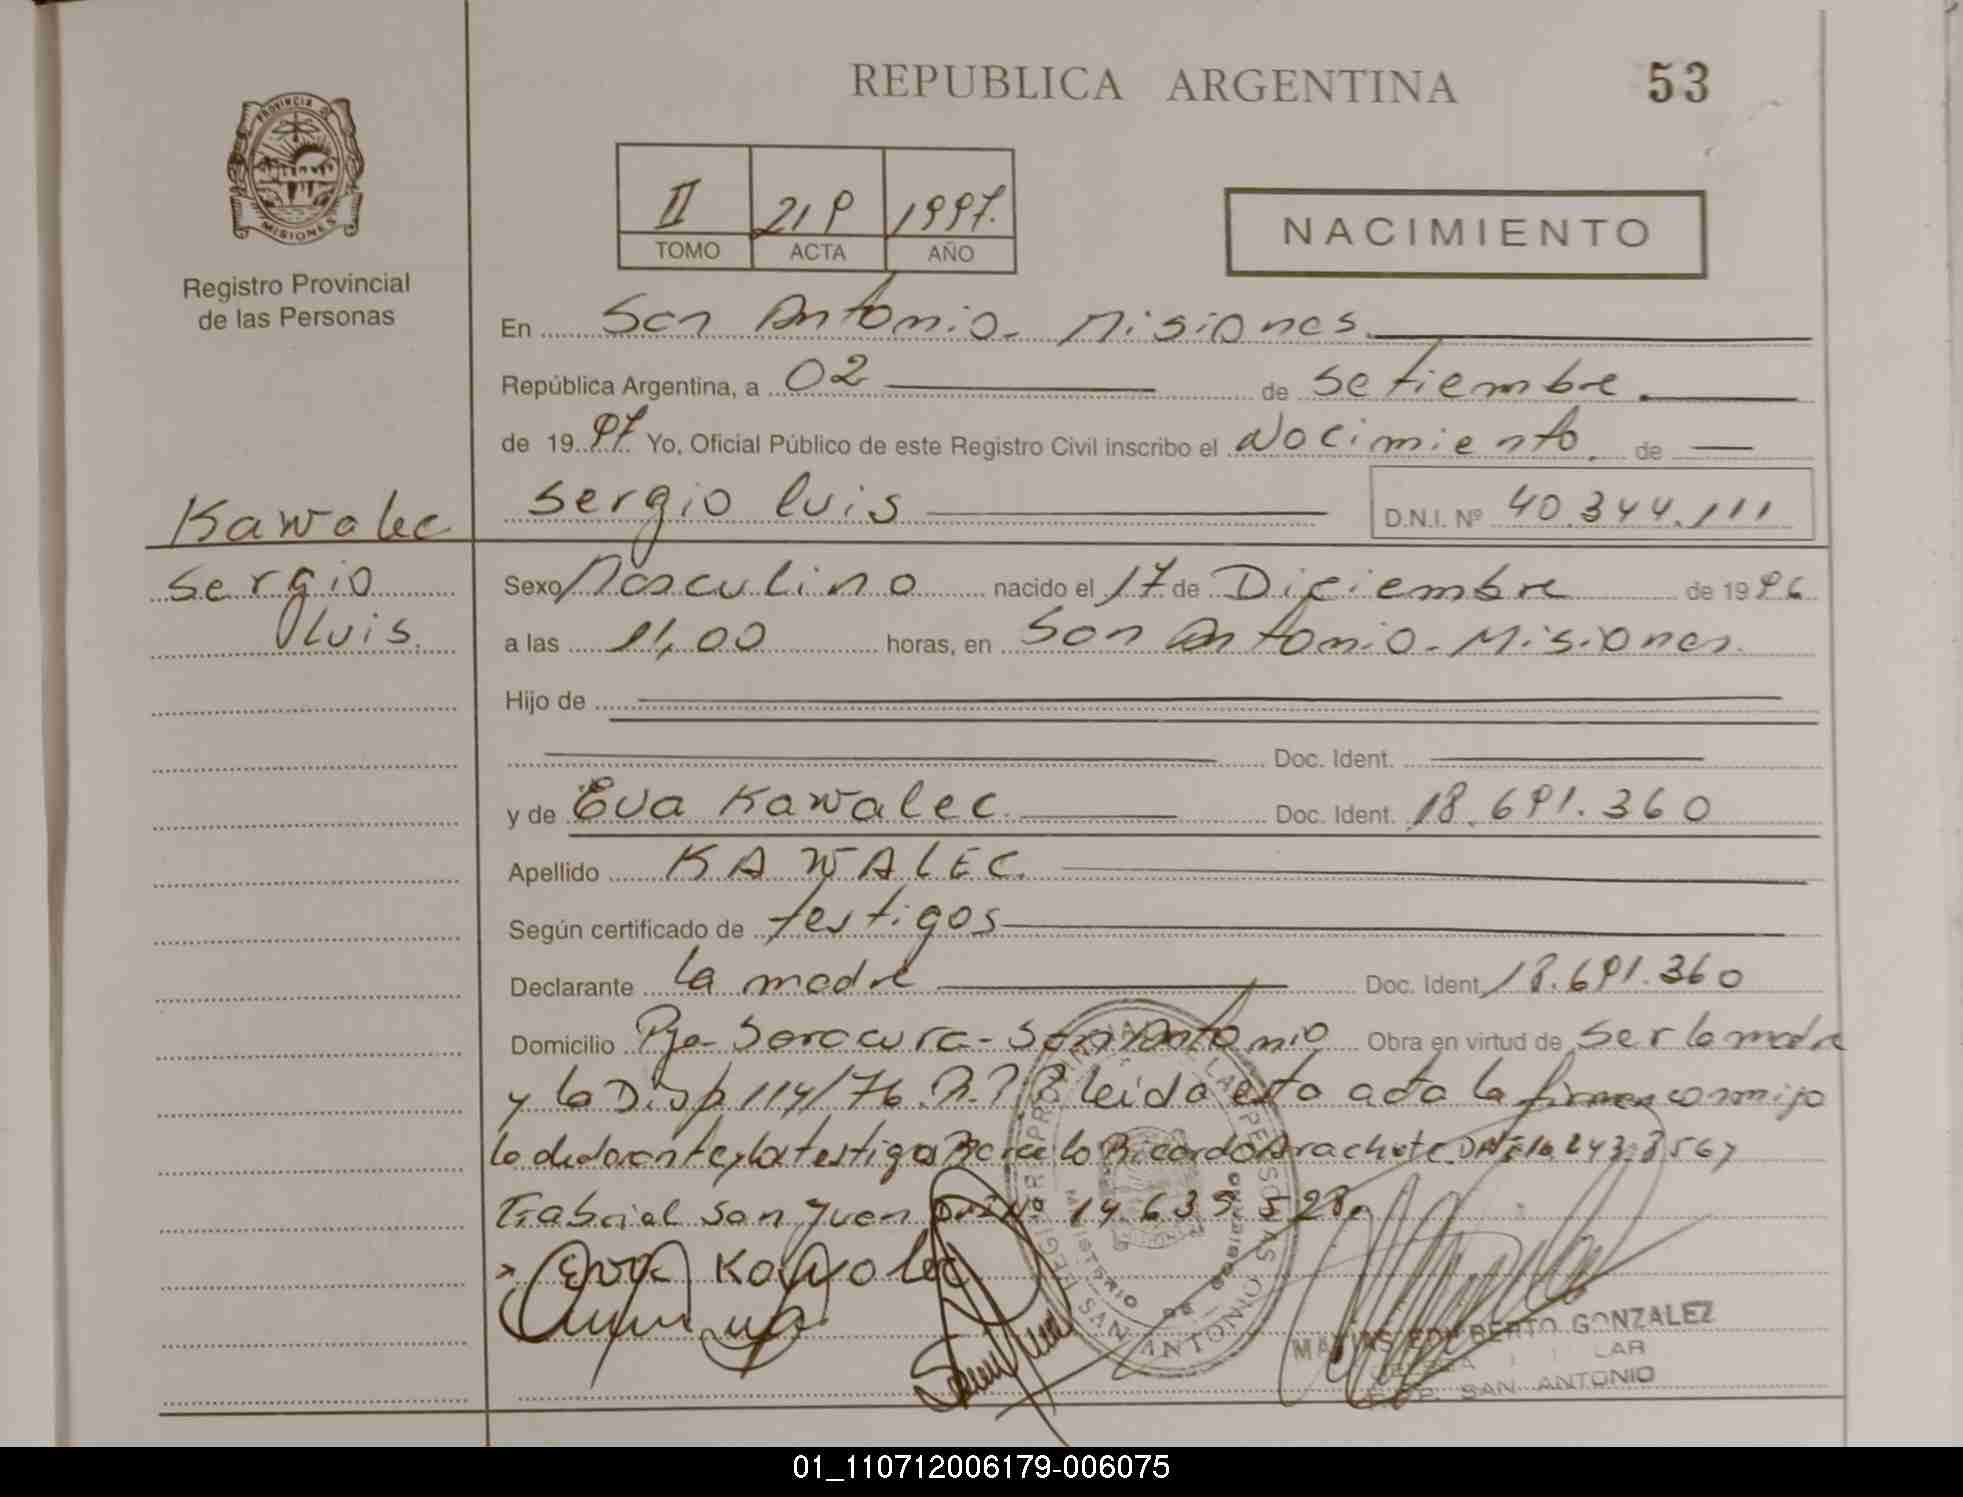 REPUBLICA ARGENTINA
53
PROVINCIA DE
MISIONES
Registro Provincial
de las Personas
II 219 1997.
TOMO ACTA AÑO
NACIMIENTO
En San Antonio - Misiones.
República Argentina, a 02 de Setiembre.
de 19 97 Yo, Oficial Público de este Registro Civil inscribo el Nacimiento. de
Sergio luis D.N.I. Nº 40.344.111
Kawalec
Sergio
luis.
Sexo Masculino nacido el 17 de Diciembre de 19 96
a las 11,00 horas, en San Antonio - Misiones.
Hijo de
Doc. Ident.
y de Eva Kawalec. Doc. Ident. 18.691.360
Apellido KAWALEC.
Según certificado de testigos
Declarante la madre Doc. Ident. 18.691.360
Domicilio Pje- Saracura - San Antonio Obra en virtud de Ser la madre
y la Disp. 114/76. R.P.P. leida esta acta la firman conmigo
la declarante y los testigos Ricardo DNI
San Juan DNI Nº 14.635.528.
Eva Kawalec
REGISTRO PROVINCIAL DE LAS PERSONAS
MINISTERIO DE GOBIERNO
SAN ANTONIO
GONZALEZ
SAN ANTONIO
01_110712006179-006075